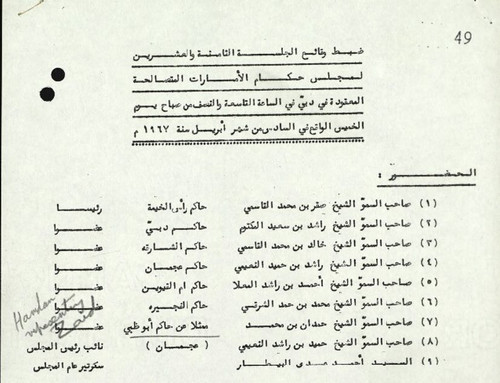 49
ضبط وقائع الجلسة الثامنة والعشرين
لمجلس حكام الأمارات المتصالحة
المعقودة في دبي في الساعة التاسعة والنصف من صباح يوم
الخميس الواقع في السادس من شهر أبريل سنة ١٩٦٧ م
الحضور :
(١) صاحب السمو الشيخ صقر بن محمد القاسمي حاكم رأس الخيمة رئيسا
(٢) صاحب السمو الشيخ راشد بن سعيد المكتوم حاكم دبي عضوا
(٣) صاحب السمو الشيخ خالد بن محمد القاسمي حاكم الشارقة عضوا
(٤) صاحب السمو الشيخ راشد بن حميد النعيمي حاكم عجمان عضوا
(٥) صاحب السمو الشيخ أحمد بن راشد المعلا حاكم ام القيوين عضوا
(٦) صاحب السمو الشيخ محمد بن حمد الشرقي حاكم الفجيره عضوا
(٧) صاحب السمو الشيخ حمدان بن محمد ممثلا عن حاكم أبو ظبي عضوا
(٨) صاحب السمو الشيخ حميد بن راشد النعيمي (عجمان) نائب رئيس المجلس
(٩) السيد أحمد البيطار سكرتير عام المجلس
Hamdan
representing
Zaid